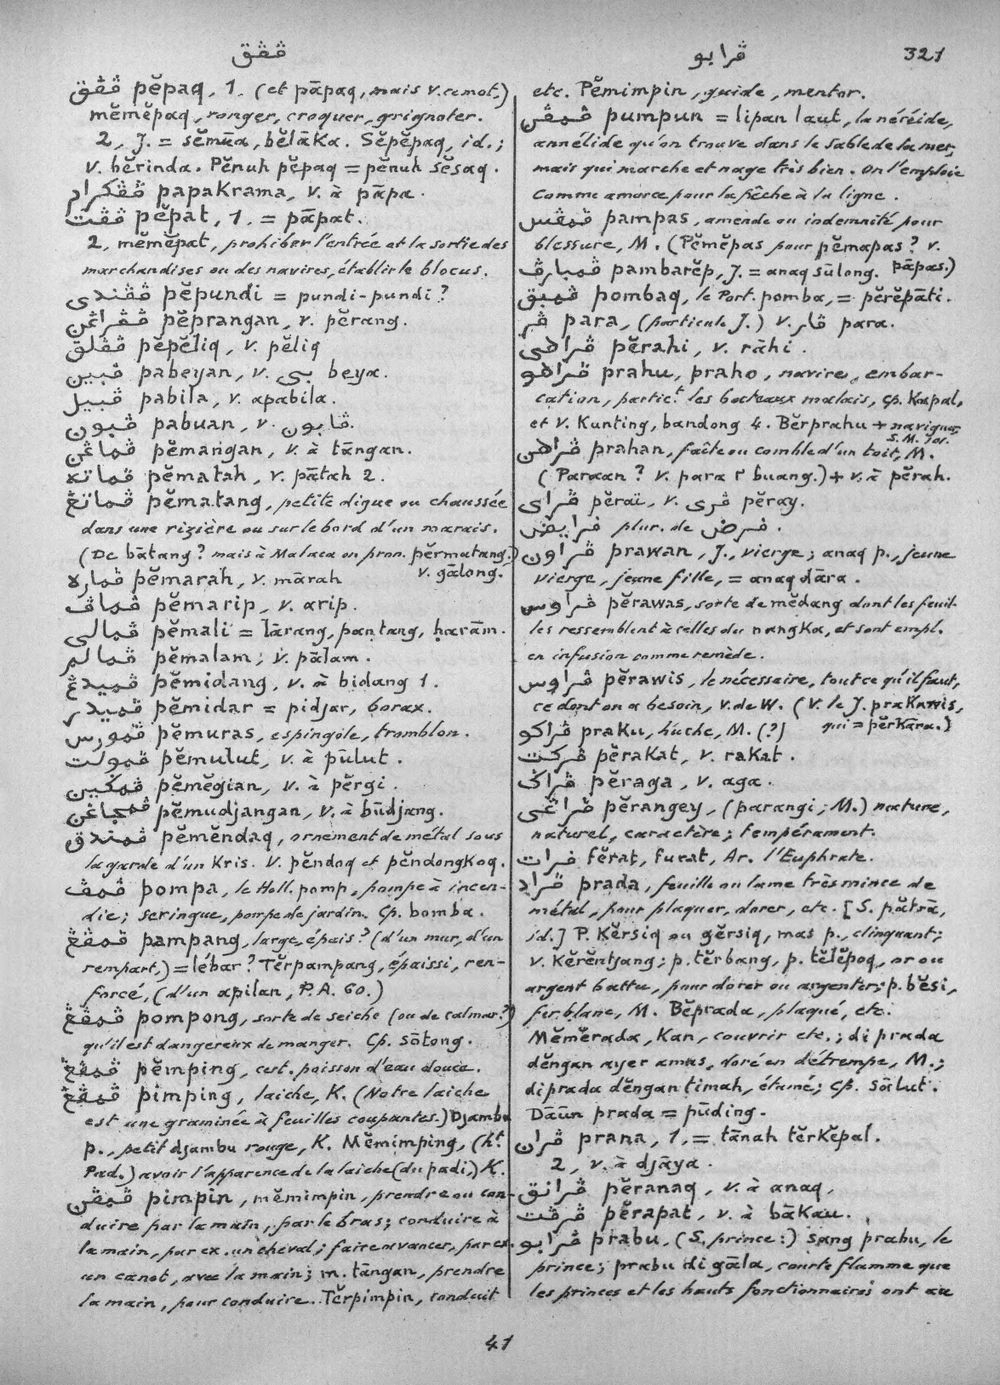 ڤڤق
ڤرابو
321
ڤڤق pĕpaq, 1. (et pāpaq, mais v. ce mot.)
mĕmĕpaq, ronger, croquer, grignoter.
2, J. = sĕmūa, bĕlāka. Sĕpĕpaq, id.;
v. bĕrinda. Pĕnuh pĕpaq = pĕnuh sĕsaq.
ڤڤكرام papakrama, v. à pāpa.
ڤڤت pĕpat, 1, = pāpat.
2, mĕmĕpat, prohiber l'entrée et la sortie des
marchandises ou des navires, établir le blocus.
ڤڤندى pĕpundi = pundi-pundi?
ڤڤراڠن pĕprangan, v. pĕrang.
ڤڤلق pĕpĕliq, v. pĕliq
ڤبين pabeyan, v. بى beya.
ڤبيل pabila, v. apabila.
ڤبون pabuan, v. ڤابون.
ڤماڠن pĕmangan, v. à tāngan.
ڤماته pĕmatah, v. pātah 2.
ڤماتڠ pĕmatang, petite digue ou chaussée
dans une rizière ou sur le bord d'un marais.
(De bātang? mais à Malaca on pron. pĕrmatang.)
ڤماره pĕmarah, v. mārah v. gālong.
ڤماڤ pĕmarip, v. arip.
ڤمالى pĕmali = lārang, pantang, ḥarām.
ڤمالم pĕmalam; v. pālam.
ڤميدڠ pĕmidang, v. à bidang 1.
ڤميدر pĕmidar = pidjar, borax.
ڤمورس pĕmuras, espingole, tromblon.
ڤمولت pĕmulut, v. à pūlut.
ڤمڬين pĕmĕgian, v. à pĕrgi.
ڤمجاڠن pĕmudjangan, v. à būdjang.
ڤمندق pĕmĕndaq, ornement de métal sous
la garde d'un kris. v. pĕndoq et pĕndongkoq.
ڤمڤ pompa, le Holl. pomp, pompe à incen-
die; seringue, pompe de jardin. Cp. bomba.
ڤمڤڠ pampang, large, épais? (d'un mur, d'un
rempart.) = lébar? Tĕrpampang, épaissi, ren-
forcé, (d'un apilan, P.A. 60.)
ڤمڤڠ pompong, sorte de seiche (ou de calmar?)
qu'il est dangereux de manger. Cp. sōtong.
ڤمڤڠ pĕmping, cert. poisson d'eau douce.
ڤمڤڠ pimping, laiche, K. (Notre laiche
est une graminée à feuilles coupantes.) Djambu
p., petit djambu rouge, K. Mĕmimping, (ht
Pad.) avoir l'apparence de la laiche (du padi,) K.
ڤمڤن pimpin, mĕmimpin, prendre ou con-
duire par la main, par le bras; conduire à
la main, par ex. un cheval; faire avancer, par ex.
un canot, avec la main; m. tāngan, prendre
la main, pour conduire. Tĕrpimpin, conduit
etc. Pĕmimpin, guide, mentor.
ڤمڤن pumpun = lipan laut, la néréide,
annélide qu'on trouve dans le sable de la mer,
mais qui marche et nage très bien. On l'emploie
comme amorce pour la pêche à la ligne.
ڤمڤس pampas, amende ou indemnité pour
blessure, M. (Pĕmĕpas pour pĕmapas? v.
pāpas.)
ڤمبارڤ pambarĕp, J. = anaq sūlong.
ڤمبق pombaq, le Port. pomba, = pĕrĕpāti.
ڤر para, (particule J.) v. ڤار para.
ڤراهى pĕrahi, v. rāhi.
ڤراهو prahu, praho, navire, embar-
cation, partict. les bateaux malais, cp. kapal,
et v. kunting, bandong 4. Bĕrprahu + naviguer,
S. M. Jor.
ڤراهن prahan, faîte ou comble d'un toit, M.
(Paraan? v. para r buang.) + v. à pĕrah.
ڤراى pĕraï, v. ڤرى pĕray.
فرايض plur. de فرض.
ڤراون prawan, J., vierge; anaq p., jeune
vierge, jeune fille, = anaq dāra.
ڤراوس pĕrawas, sorte de mĕdang dont les feuil-
les ressemblent à celles du nangka, et sont empl.
en infusion comme remède.
ڤراوس pĕrawis, le nécessaire, tout ce qu'il faut,
ce dont on a besoin, v. de W. (V. le J. prakawis,
qui = pĕrkāra.)
ڤراكو praku, huche, M. (?)
ڤركت pĕrakat, v. rakat.
ڤراڬ pĕraga, v. aga.
ڤراڠى pĕrangey, (parangi; M.) nature,
naturel, caractère; tempérament.
فرات fĕrat, furat, Ar. l'Euphrate.
ڤراد prada, feuille ou lame très mince de
métal, pour plaquer, dorer, etc. [S. pātra,
id.] P. kĕrsiq ou gĕrsiq, mas p., clinquant;
v. kĕrĕntjang; p. tĕrbang, p. tĕlĕpoq, or ou
argent battu, pour dorer ou argenter; p. bĕsi,
fer-blanc, M. Bĕprada, plaqué, etc.
Mĕmĕrada, kan, couvrir etc.; di prada
dĕngan ayer amas, doré en détrempe, M.;
diprada dĕngan timah, étamé; cp. sālut.
Dāūn prada = pūding.
ڤران prana, 1, = tānah tĕrkĕpal.
2, v. à djāya.
ڤرانق pĕranaq, v. à anaq.
ڤرڤت pĕrapat, v. à bākau.
ڤرابو prabu, (S. prince:) sang prabu, le
prince; prabu di gāla, courte flamme que
les princes et les hauts fonctionnaires ont au
41